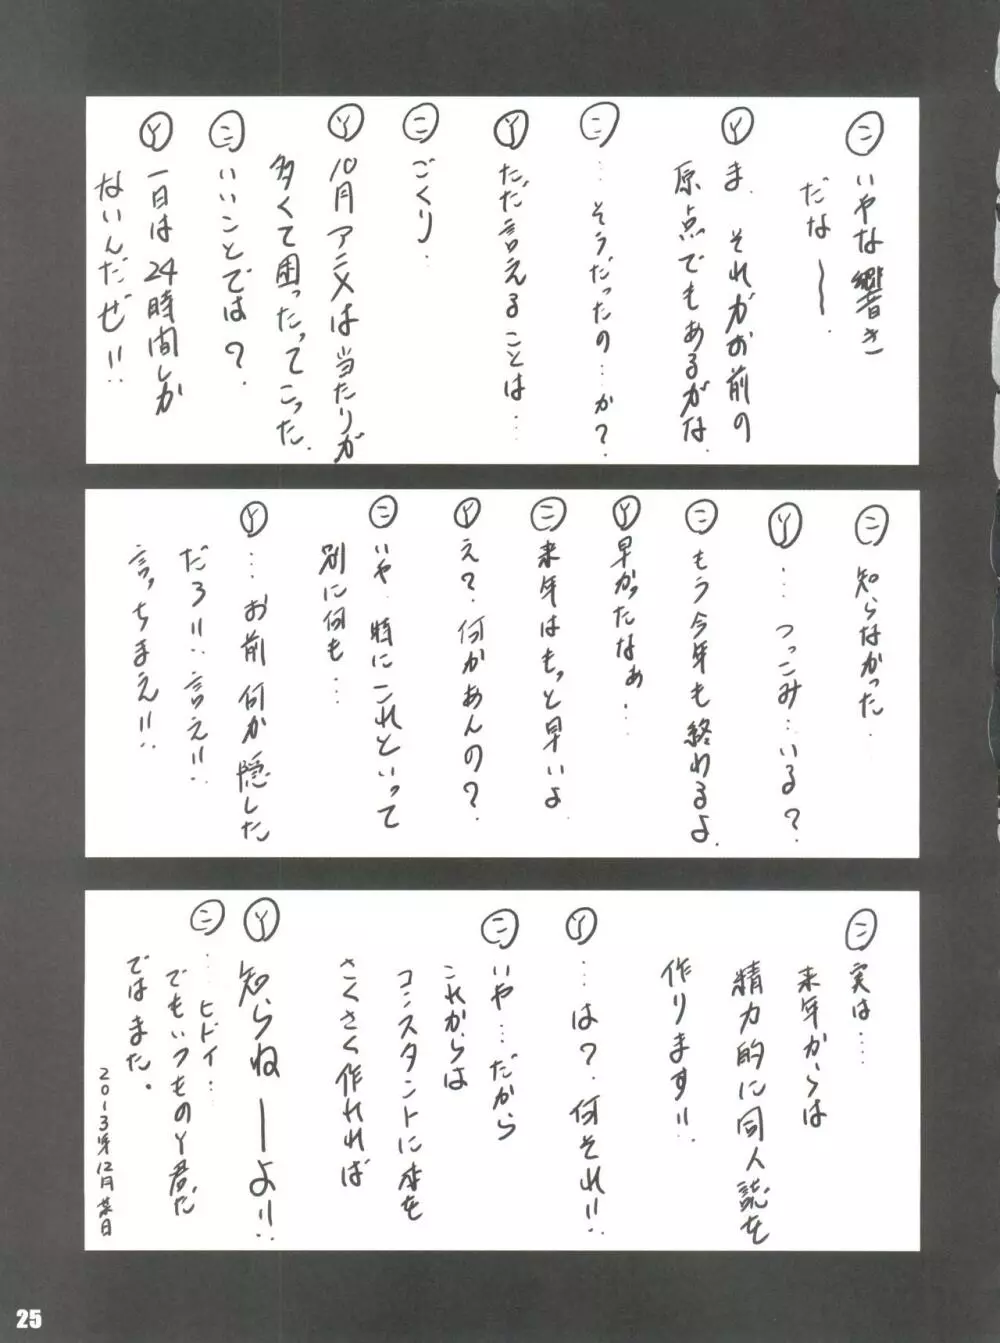 ㊁ いやな響き
だな——.
Ⓨ ま. それがお前の
原点でもあるがな
㊁ …そうだったの…か?
Ⓨ ただ言えることは…
㊁ ごくり.
Ⓨ 10月アニメは当たりが
多くて困ったってこった.
㊁ いいことでは?
Ⓨ 一日は24時間しか
ないんだぜ!!
㊁ 知らなかった.
Ⓨ …つっこみ…いる?
㊁ もう今年も終わるよ.
Ⓨ 早かったなぁ…
㊁ 来年はもっと早いよ
Ⓨ え?何かあんの?
㊁ いや. 特にこれといって
別に何も…
Ⓨ …お前何か隠した
だろ!!言え!!
言っちまえ!!
㊁ 実は……
来年からは
精力的に同人誌を
作ります!!
Ⓨ …は?何それ!!
㊁ いや…だから
これからは
コンスタントに本を
さくさく作れれば
Ⓨ 知らねーよ!!
㊁ …ヒドイ…
でもいつものY君だ
ではまた。
2013年12月某日
25